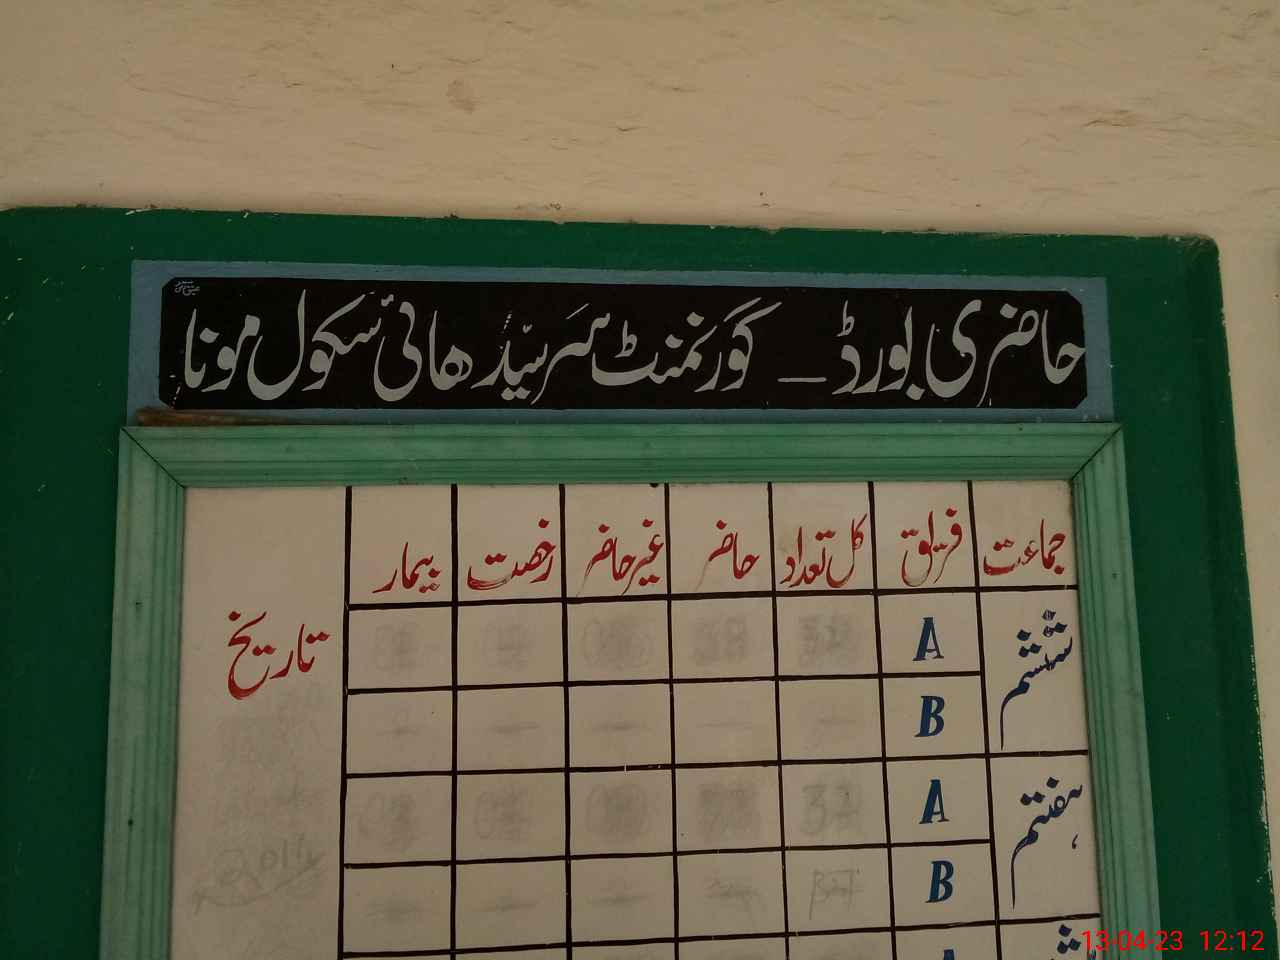 حاضری بورڈ ـ گورنمنٹ سَرسیّد ھائی سکول مونا
جماعت فریق کل تعداد حاضر غیر حاضر رخصت بیمار
تاریخ
ششم A
B
ہفتم A 32
B
A
13-04-23 12:12